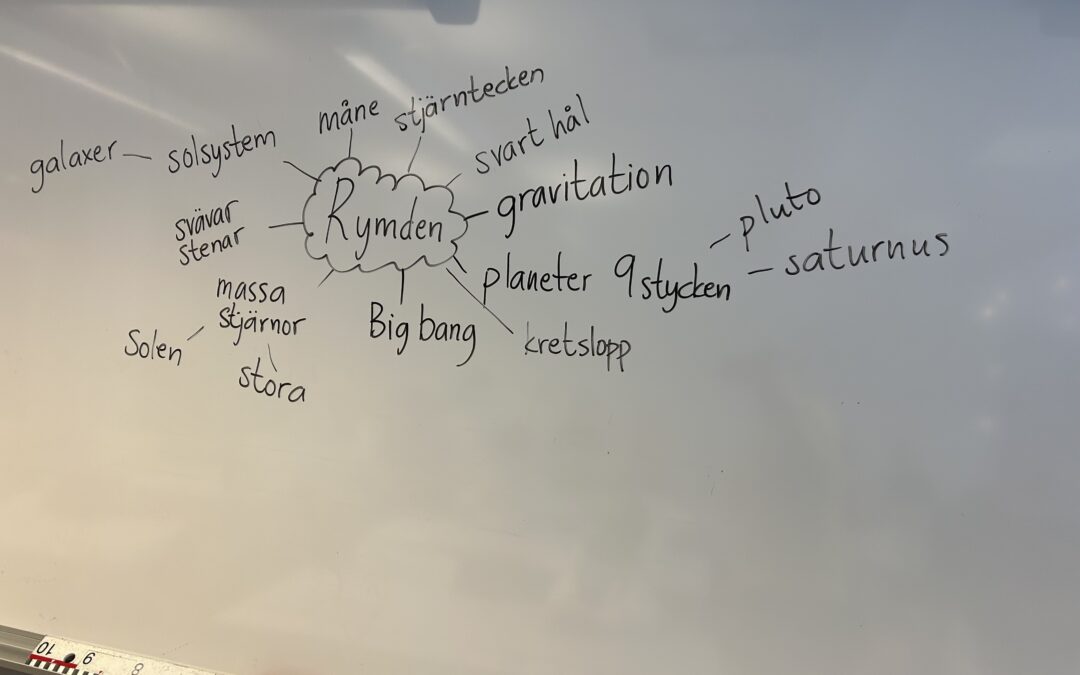 måne stjärntecken
galaxer – solsystem
svart hål
Rymden
gravitation
svävar
stenar
pluto
planeter 9 stycken – saturnus
massa
stjärnor
Solen
stora
Big bang
kretslopp
10 9 8